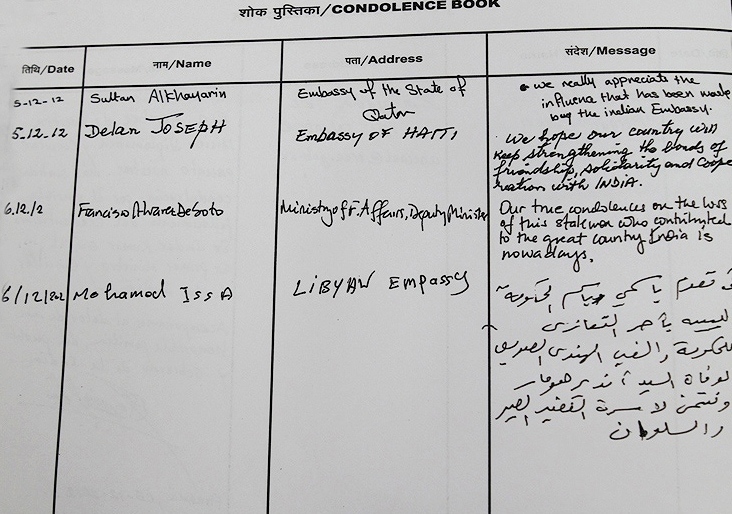 शोक पुस्तिका/CONDOLENCE BOOK
तिथि/Date
नाम/Name
पता/Address
संदेश/Message
5-12-12
Sultan Alkhayarin
Embassy of the State of
Qatar
we really appreciate the
influena that has been made
buy the indian Embassy.
5.12.12
Delan JOSEPH
Embassy OF HAITI
We hope our country will
keep strengthening the bonds of
friendship, solidarity and Coope
ration with INDIA.
6.12./2
Francisco Alvarez DeSoto
Ministry of F. Affairs, Deputy Minister
Our true condolences on the loss
of this statesman who contributed
to the great country India is
nowadays.
6/12/202
Mohamod ISSA
LIBYAN Empassy
نتقدم باسمي وباسم الحكومة
الليبيه بأحر التعازى
للحكومة والشعب الهندى الصديق
لوفاة السيد
ونتمنى لاسرة الفقيد الصبر
والسلوان